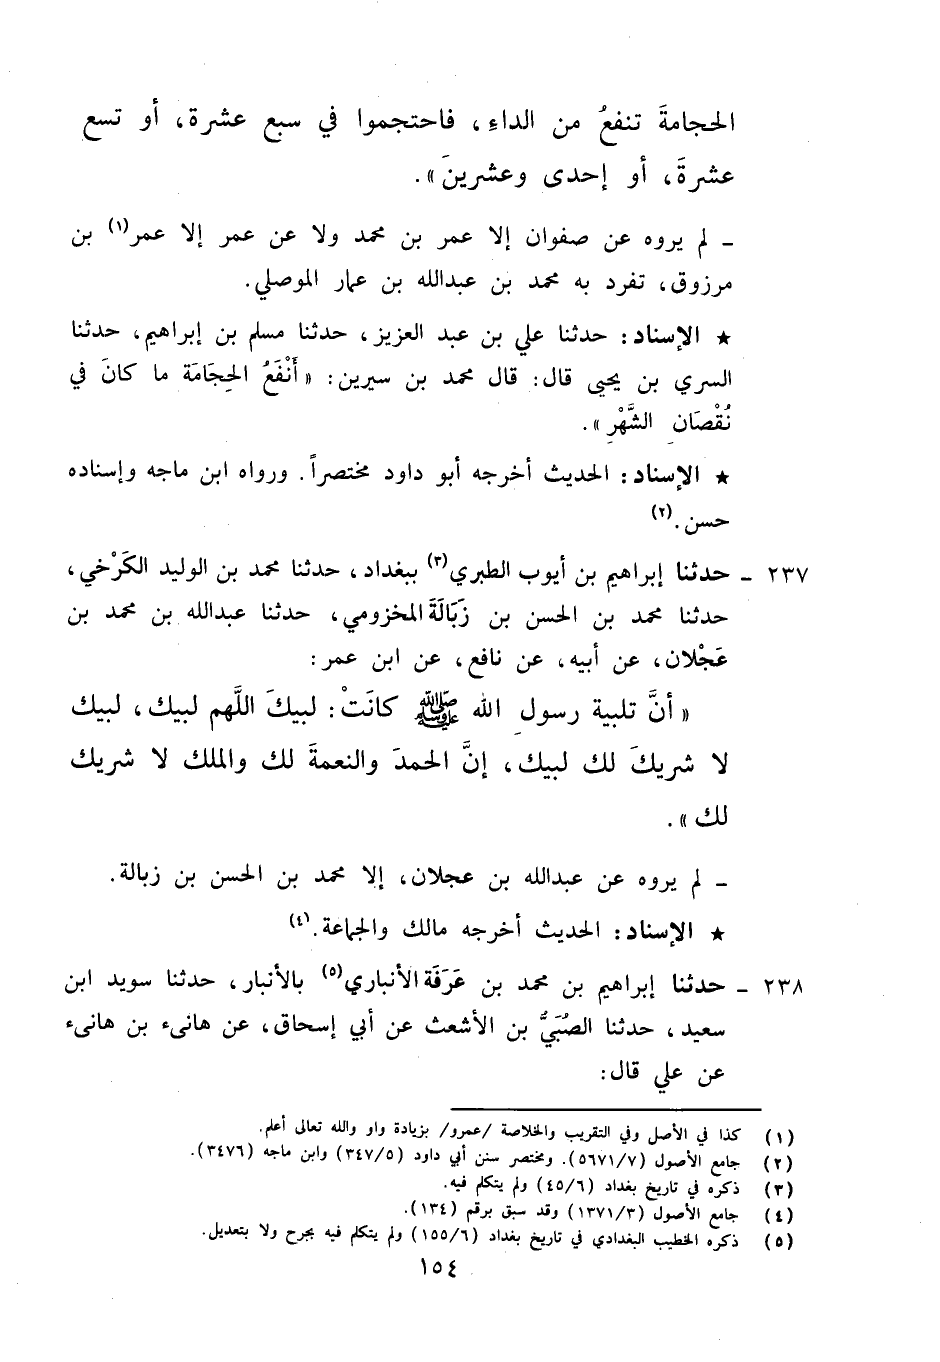 الحجامةَ تنفعُ من الداءِ، فاحتجموا في سبع عشرة، أو تسع
عشرةَ، أو إحدى وعشرينَ».
ـ لم يروه عن صفوان إلا عمر بن محمد ولا عن عمر إلا عمر(١) بن
مرزوق، تفرد به محمد بن عبدالله بن عمار الموصلي.
★ الإسناد: حدثنا علي بن عبد العزيز، حدثنا مسلم بن إبراهيم، حدثنا
السري بن يحيى قال: قال محمد بن سيرين: «أَنْفَعُ الحِجَامَة ما كانَ في
نُقْصَانِ الشَّهْرِ».
★ الإسناد: الحديث أخرجه أبو داود مختصراً. ورواه ابن ماجه وإسناده
حسن.(٢)
٢٣٧ ـ حدثنا إبراهيم بن أيوب الطبري(٣) ببغداد، حدثنا محمد بن الوليد الكَرْخي،
حدثنا محمد بن الحسن بن زَبَالَةَ المخزومي، حدثنا عبدالله بن محمد بن
عَجْلان، عن أبيه، عن نافع، عن ابن عمر:
«أنَّ تلبية رسولِ الله ﷺ كانَتْ: لبيكَ اللَّهم لبيك، لبيك
لا شريكَ لك لبيك، إنَّ الحمدَ والنعمةَ لك والملك لا شريك
لك».
ـ لم يروه عن عبدالله بن عجلان، إلا محمد بن الحسن بن زبالة.
★ الإسناد: الحديث أخرجه مالك والجماعة.(٤)
٢٣٨ ـ حدثنا إبراهيم بن محمد بن عَرَفَة الأنباري(٥) بالأنبار، حدثنا سويد ابن
سعيد، حدثنا الصُبَيُّ بن الأشعث عن أبي إسحاق، عن هانىء بن هانىء
عن علي قال:
(١) كذا في الأصل وفي التقريب والخلاصة /عمرو/ بزيادة واو والله تعالى أعلم.
(٢) جامع الأصول (٥٦٧١/٧). ومختصر سنن أبي داود (٣٤٧/٥) وابن ماجه (٣٤٧٦).
(٣) ذكره في تاريخ بغداد (٤٥/٦) ولم يتكلم فيه.
(٤) جامع الأصول (١٣٧١/٣) وقد سبق برقم (١٣٤).
(٥) ذكره الخطيب البغدادي في تاريخ بغداد (١٥٥/٦) ولم يتكلم فيه بجرح ولا بتعديل.
١٥٤